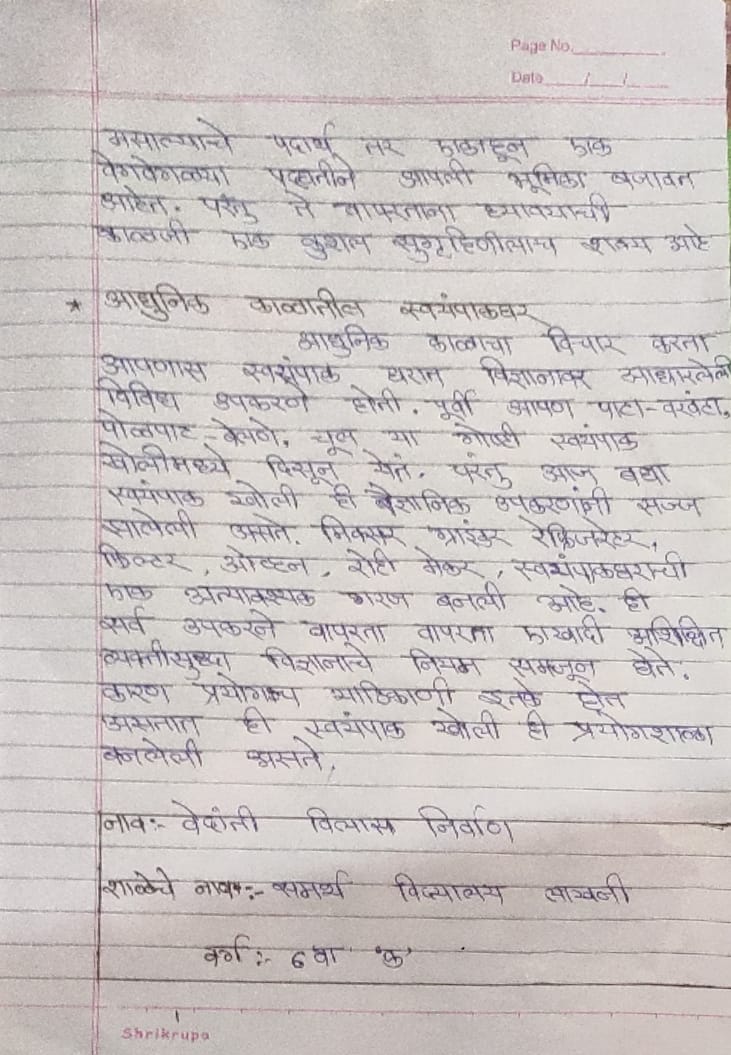 Page No.
Date / /
मसाल्याचे पदार्थ तर एकाहून एक
वेगवेगळ्या पद्धतीने आपली भूमिका बजावत
आहेत. परंतु ते वापरताना घ्यावयाची
काळजी एक कुशल सुगृहिणीलाच शक्य आहे
* आधुनिक काळातील स्वयंपाकघर
आधुनिक काळाचा विचार करता
आपणास स्वयंपाक घरात विज्ञानावर आधारलेली
विविध उपकरणे होती. पूर्वी आपण पाटा-वरवंटा,
पोळपाट-बेलणे, चूल या गोष्टी स्वयंपाक
खोलीमध्ये दिसून येतं. परंतु आज बघा
स्वयंपाक खोली ही वैज्ञानिक उपकरणांनी सज्ज
झालेली असते. मिक्सर ग्राइंडर रेफ्रिजरेटर,
फिल्टर, ओव्हन, रोटी मेकर, स्वयंपाकघराची
एक अत्यावश्यक गरज बनली आहे. ही
सर्व उपकरने वापरता वापरता एखादी अशिक्षित
व्यक्तीसुध्दा विज्ञानाचे नियम समजून घेते.
कारण प्रयोगच याठिकाणी इतके होत
असतात ही स्वयंपाक खोली ही प्रयोगशाळा
बनलेली असते.
नाव:- वेदांती विलास निर्वाण
शाळेचे नाव:- समर्थ विद्यालय लाखनी
वर्ग:- 6 वा 'क'
Shrikrupa